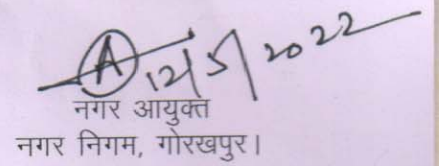 A 12/5/2022
नगर आयुक्त
नगर निगम, गोरखपुर।